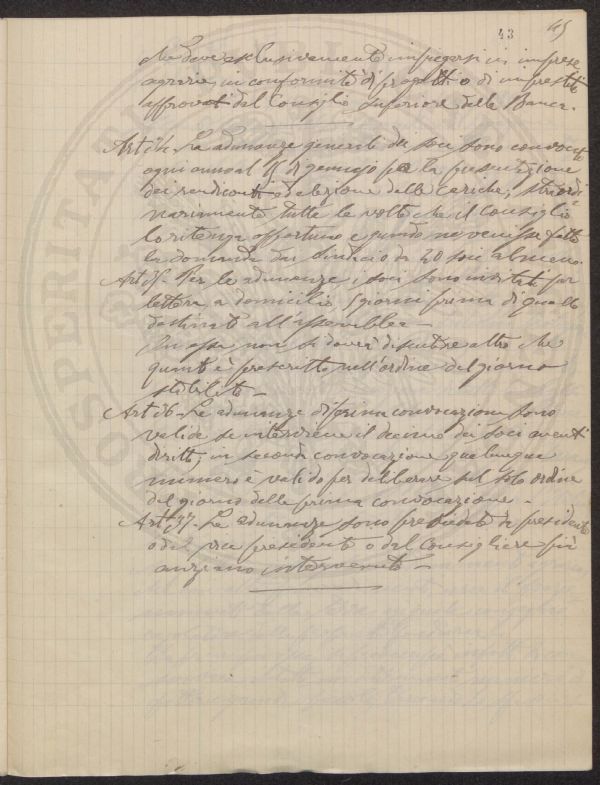 43 45
che deve esclusivamente impiegarsi in imprese
agrarie in conformità di progetti o di imprestiti
approvati dal Consiglio Superiore della Banca.
Art. 34. Le adunanze generali dei soci sono convocate
ogni anno al di gennajo per la presentazione
dei rendiconti ed elezione delle cariche, straordi
nariamente tutte le volte che il Consiglio
lo ritenga opportuno e quando ne venisse fatta
la domanda dai sindaci o da 20 soci almeno.
Art. 35. Per le adunanze i soci sono invitati per
lettera a domicilio, giorni prima di quello
destinato all'assemblea —
In essa non si dovrà discutere altro che
quanto è prescritto nell'ordine del giorno
stabilito —
Art. 36. Le adunanze di prima convocazione sono
valide se interviene il decimo dei soci aventi
diritto; in seconda convocazione qualunque
numero è valido per deliberare sul solo ordine
del giorno della prima convocazione.
Art. 37. Le adunanze sono presiedute da presidente
o dal vice presidente o dal Consigliere più
anziano intervenuto —
OSPERITATE